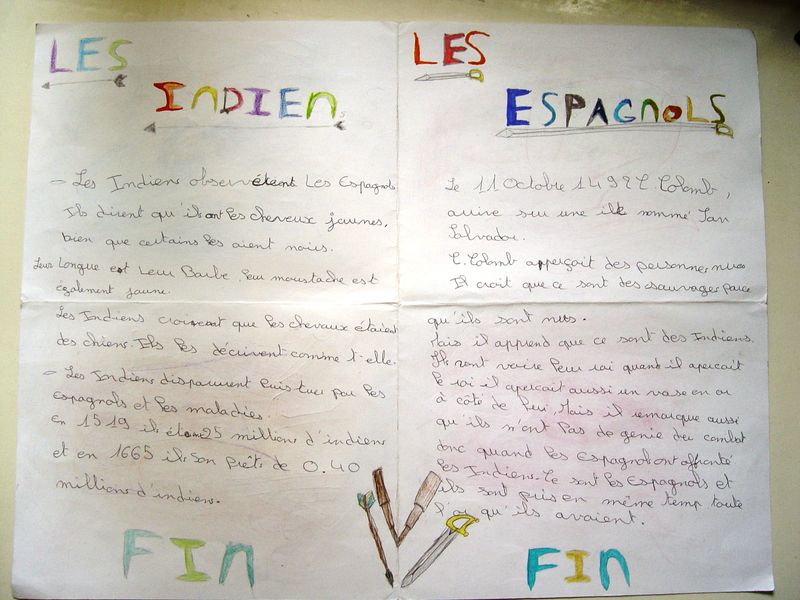 LES
INDIENS
- Les Indiens observèrent Les Espagnols
Ils dirent qu'ils ont les cheveux jaunes,
bien que certains les aient noirs.
Leur Longue est Leur Barbe, leur moustache est
également jaune.
Les Indiens croient que les chevaux étaient
des chiens. Ils les décrivent comme t-elle.
- Les Indiens disparurent tuer par les
espagnols et les maladies.
en 1519 ils étaons 25 millions d'indiens
et en 1665 ils son prêts de 0.40
millions d'indiens.
FIN
LES
ESPAGNOLS
Le 11 Octobre 1492 C. Colomb,
arrive sur une île nommé San
Salvador.
C. Colomb apperçoit des personnes nues
Il croit que ce sont des sauvages parce
qu'ils sont nus.
Mais il apprend que ce sont des Indiens.
Ils vont voir leur roi quant il apercoit
le roi il apercoit aussi un vase en or
à côté de lui, Mais il remarque aussi
qu'ils n'ont pas de genie du combat
donc quand les Espagnol ont affronté
les Indiens. Ce sont les Espagnols et
ils sont pris en même temp toute
l'or qu'ils avaient.
FIN